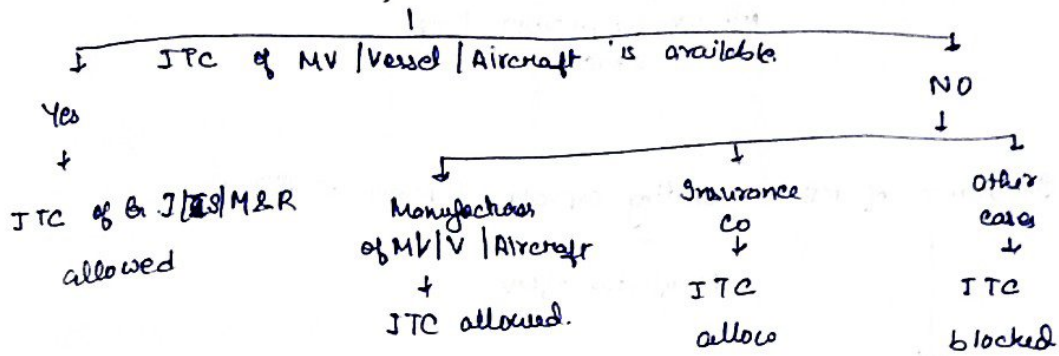 ITC of MV/Vessel/Aircraft is available.
Yes
NO
ITC of G I/IS/M&R
allowed
Manufactures
of MV/V/Aircraft
ITC allowed.
Insurance
Co
ITC
allow
Other
cases
ITC
blocked